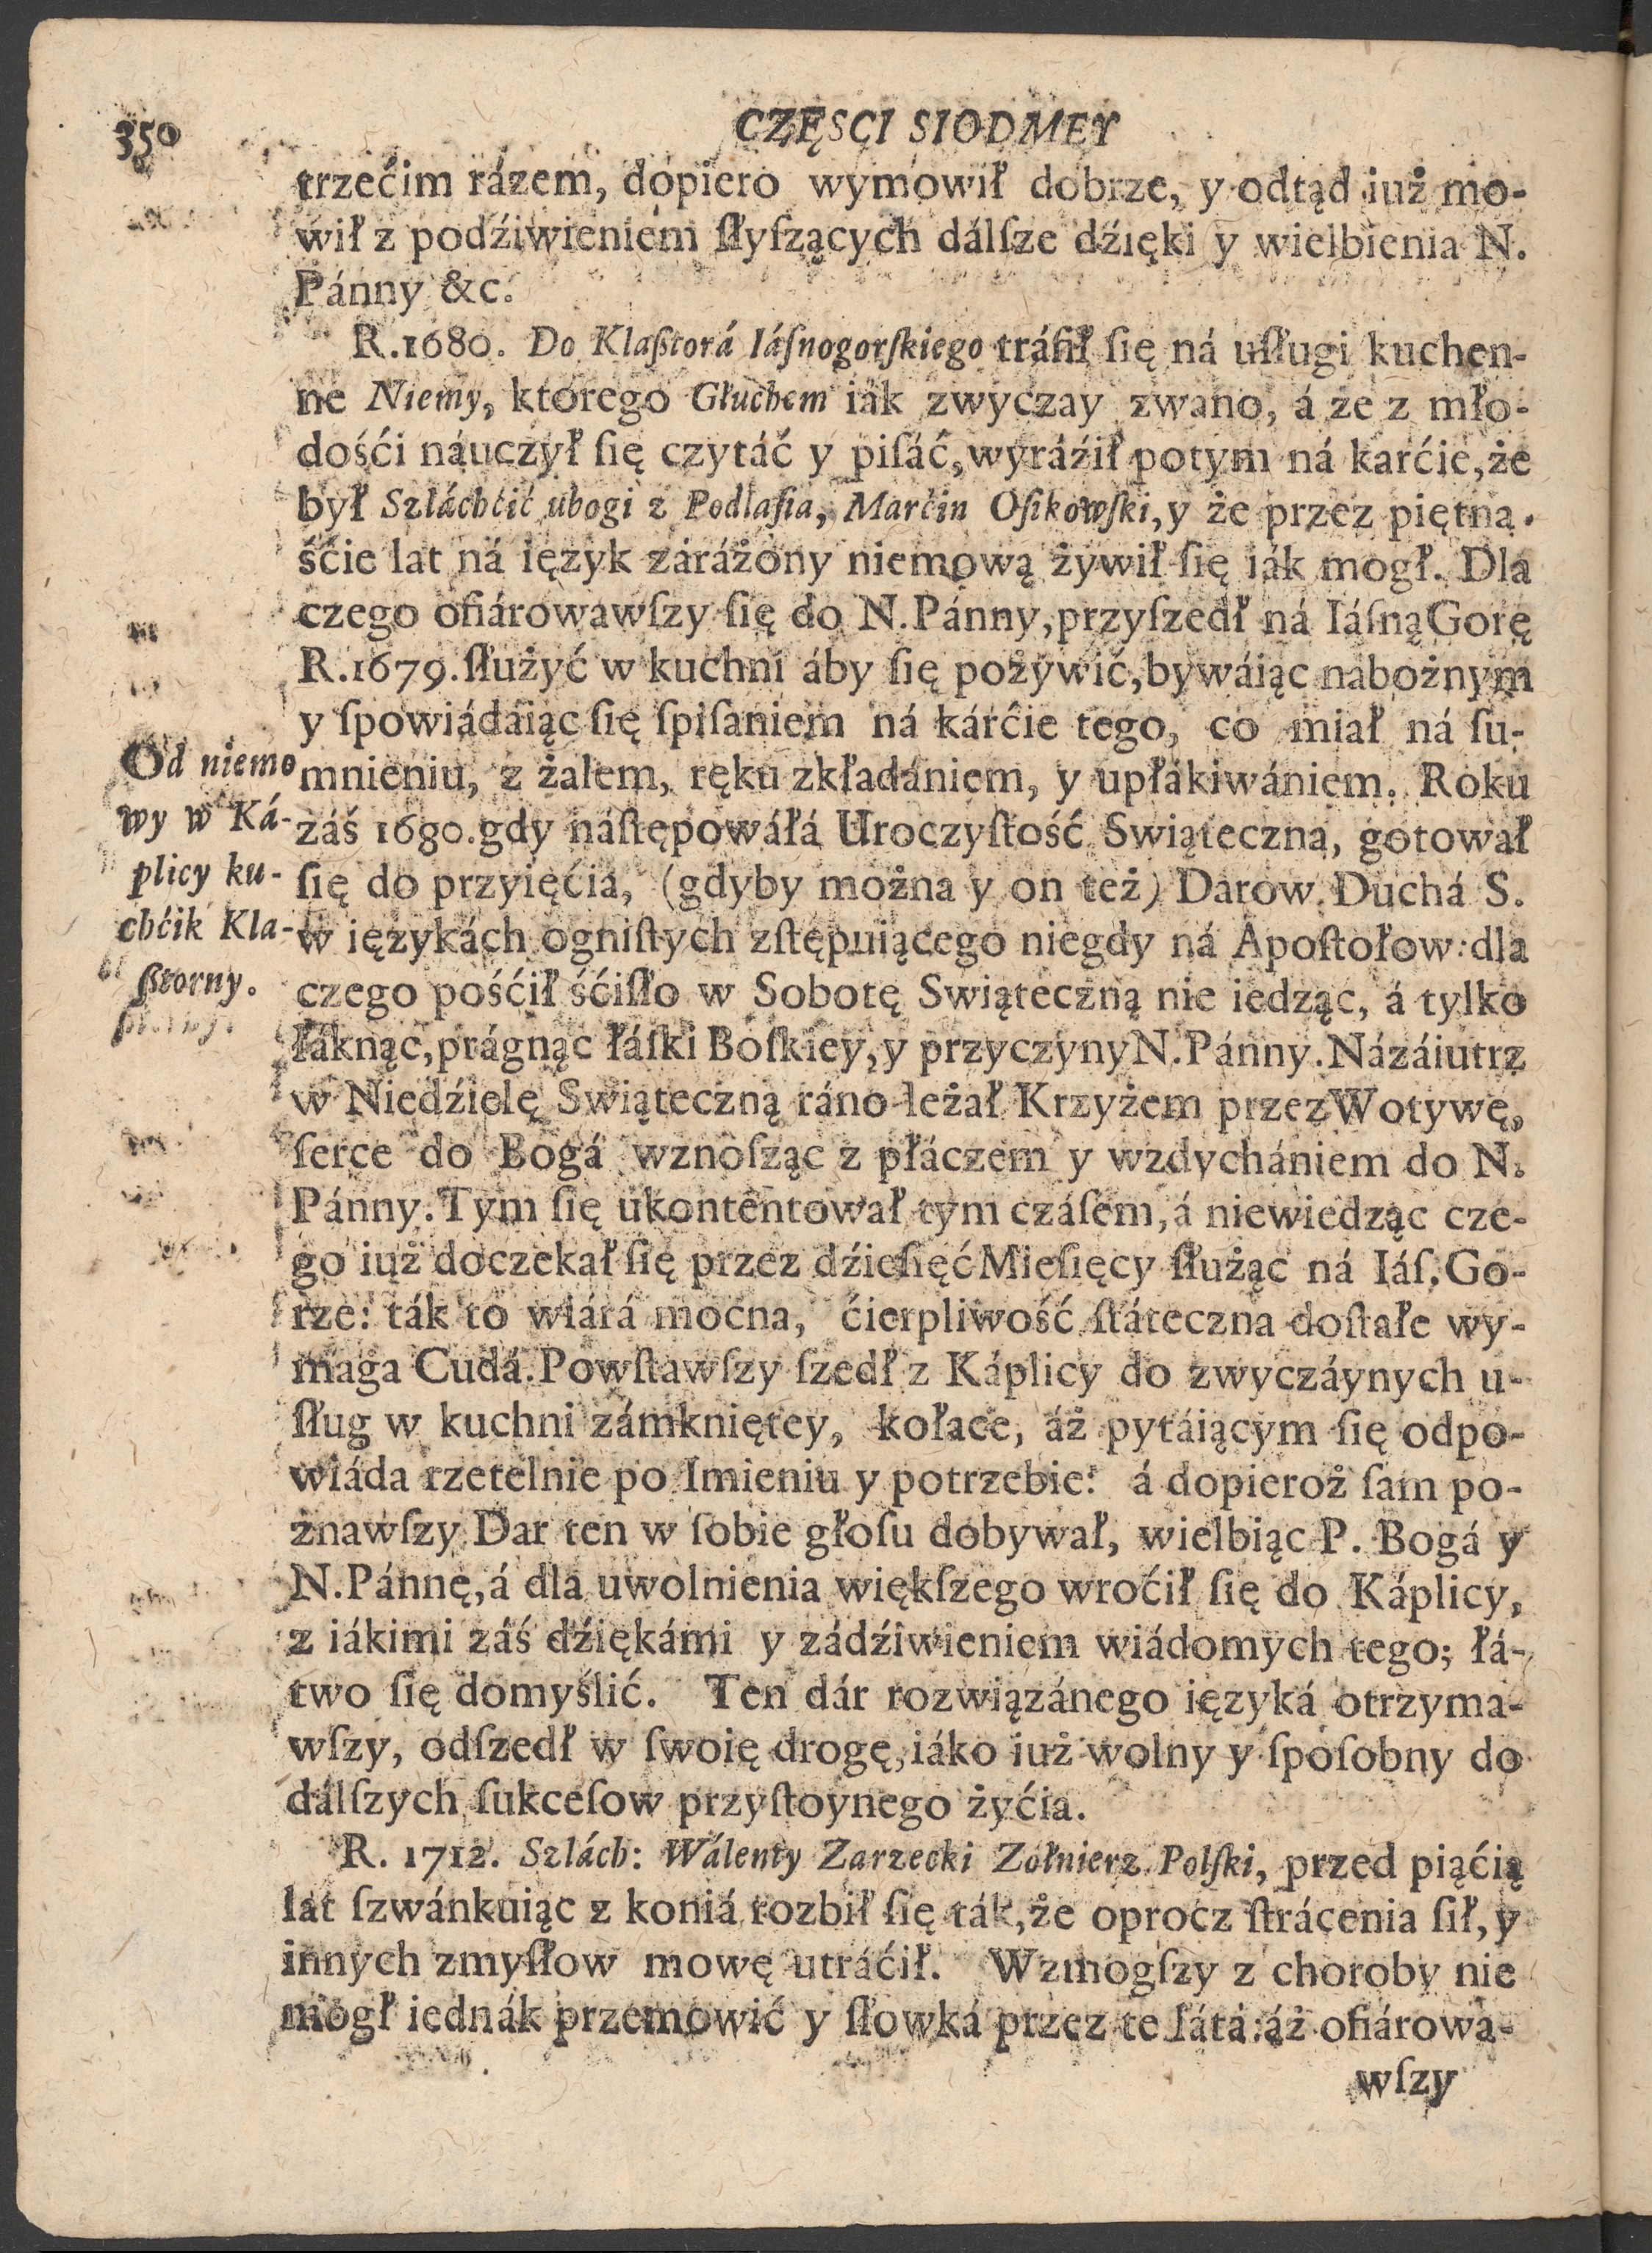 350
CZĘSCI SIODMEY
trzećim rázem, dopiero wymowił dobrze, y odtąd iuż mo-
wił z podźiwieniem ſłyſzących dálſze dźięki y wielbienia N.
Pánny &c.
R.1680. Do Klaßtorá Iáſnogorſkiego tráfił ſię ná uſługi kuchen-
ne Niemy, ktorego Głuchem iák zwyczay zwano, á że z mło-
dośći náuczył ſię czytáć y piſáć, wyráźił potym ná karćie, że
był Szláchćić ubogi z Podlaſia, Marćin Oſikowſki, y że przez piętna-
śćie lat ná ięzyk záráżony niemową żywił ſię iák mogł. Dla
czego ofiárowawſzy ſię do N. Pánny, przyſzedł ná Iáſną Gorę
R.1679. ſłużyć w kuchni áby ſię pożywić, bywáiąc nabożnym
y ſpowiádáiąc ſię ſpiſaniem ná kárćie tego, co miał ná ſu-
mnieniu, z żalem, ręku zkładániem, y upłákiwániem. Roku
záś 1680. gdy náſtępowáłá Uroczyſtość Swiąteczna, gotował
ſię do przyięćia, (gdyby można y on też) Darow Duchá S.
w ięzykách ogniſtych zſtępuiącego niegdy ná Apoſtołow: dla
czego pośćił śćiſło w Sobotę Swiąteczną nie iedząc, á tylko
łáknąc, prágnąc łáſki Boſkiey, y przyczyny N. Pánny. Názáiutrz
w Niedźielę Swiąteczną ráno leżał Krzyżem przez Wotywę,
ſerce do Bogá wznoſząc z płáczem y wzdychániem do N.
Pánny. Tym ſię ukontentował tym czáſem, á niewiedząc cze-
go iuż doczekał ſię przez dźieſięć Mieſięcy ſłużąc ná Iáſ. Go-
rze: ták to wiárá mocna, ćierpliwość ſtáteczna doſtałe wy-
maga Cudá. Powſtawſzy ſzedł z Káplicy do zwyczáynych u-
ſług w kuchni zámkniętey, kołace, áż pytáiącym ſię odpo-
wiáda rzetelnie po Imieniu y potrzebie: á dopieroż ſam po-
znawſzy Dar ten w ſobie głoſu dobywał, wielbiąc P. Bogá y
N. Pánnę, á dla uwolnienia więkſzego wroćił ſię do Káplicy,
z iákimi záś dźiękámi y zádźiwieniem wiádomych tego; łá-
two ſię domyślić. Ten dár rozwiązánego ięzyká otrzyma-
wſzy, odſzedł w ſwoię drogę, iáko iuż wolny y ſpoſobny do
dálſzych ſukceſow przyſtoynego żyćia.
R. 1712. Szlách: Wálenty Zarzecki Zołnierz Polſki, przed piąćią
lat ſzwánkuiąc z koniá rozbił ſię ták, że oprocz ſtrácenia ſił, y
innych zmyſłow mowę utráćił. Wzmogſzy z choroby nie
mogł iednák przemowić y ſłowká przez te látá: áż ofiárowa-
wſzy
Od niemo
wy w Ká-
plicy ku-
chćik Kla-
ßtorny.